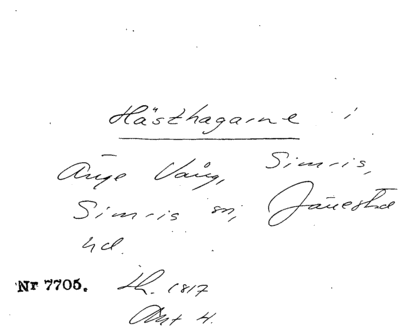 Hästhagarne i
Änge Vång, Simris,
Simris sn, Järrestad
hd.
Nr 7705. Lh. 1817
Akt 4.